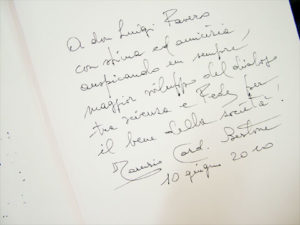 A don Luigi Ravero
con stima ed amicizia
auspicando un sempre
maggior sviluppo del dialogo
tra scienza e Fede, per
il bene della società!
Card. Bertone
10 giugno 2010